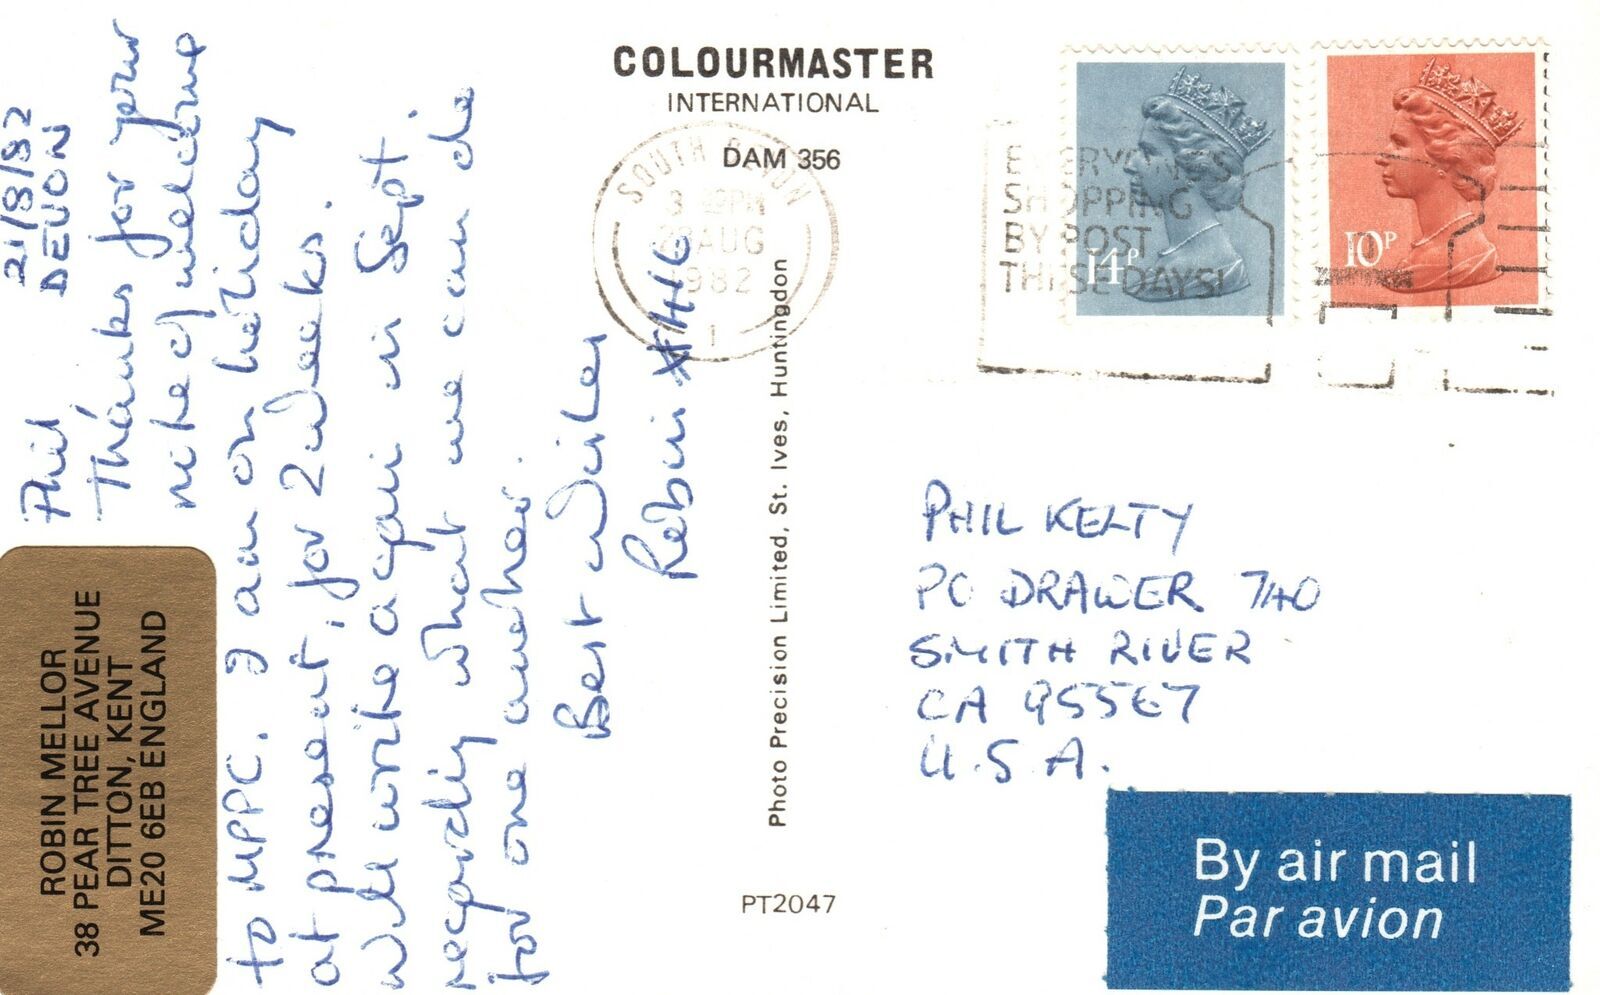 21/8/82
DEVON
Phil
Thanks for your
note of welcome
to MPPC. I am on holiday
at present, for 2 weeks.
Will write again in Sept.
regardig what we can do
for one another.
Best wishes
Robin
ROBIN MELLOR
38 PEAR TREE AVENUE
DITTON, KENT
ME20 6EB ENGLAND
COLOURMASTER
INTERNATIONAL
DAM 356
Photo Precision Limited, St. Ives, Huntingdon
PT2047
SOUTH DEVON
3 PM
AUG
1982
1
EVERYONE'S
SHOPPING
BY POST
THESE DAYS!
14P
10P
PHIL KELTY
PO DRAWER 740
SMITH RIVER
CA 95567
U.S.A.
By air mail
Par avion